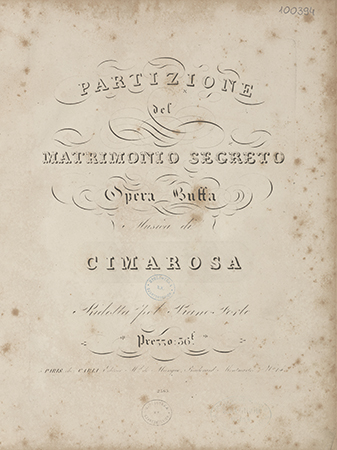 100394
PARTIZIONE
del
MATRIMONIO SEGRETO
Opera Buffa
Musica di
CIMAROSA
Ridotta pel Piano-Forte
Prezzo: 36f
PARIS, CARLI